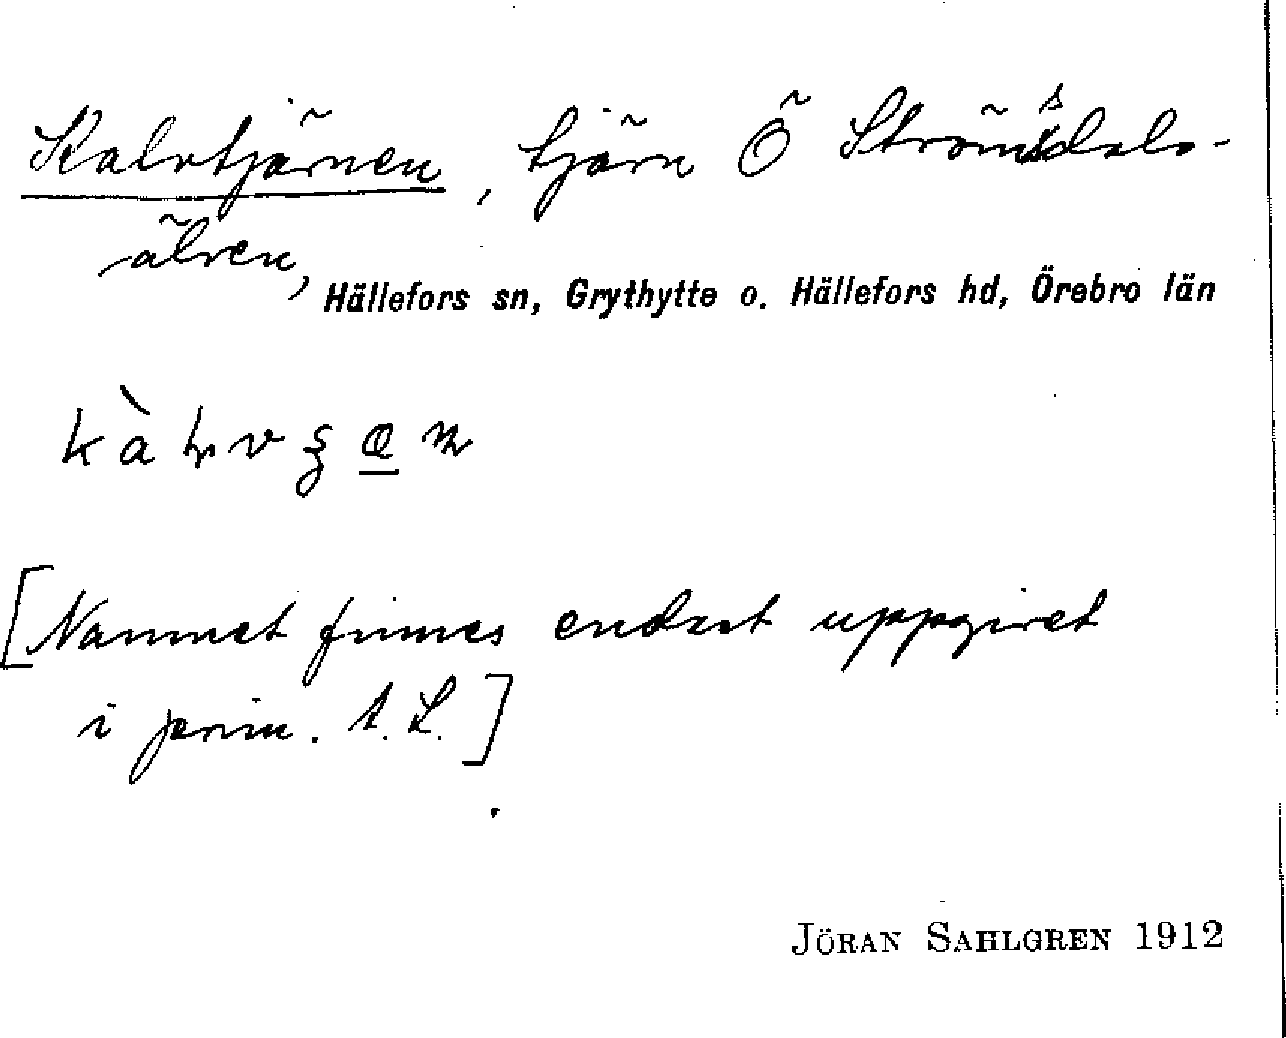 Kalvtjärnen, tjärn Ö Strömsdals-
älven,
Hällefors sn, Grythytte o. Hällefors hd, Örebro län
[Namnet finnes endast uppgivet
i prim. t. L.]
JÖRAN SAHLGREN 1912